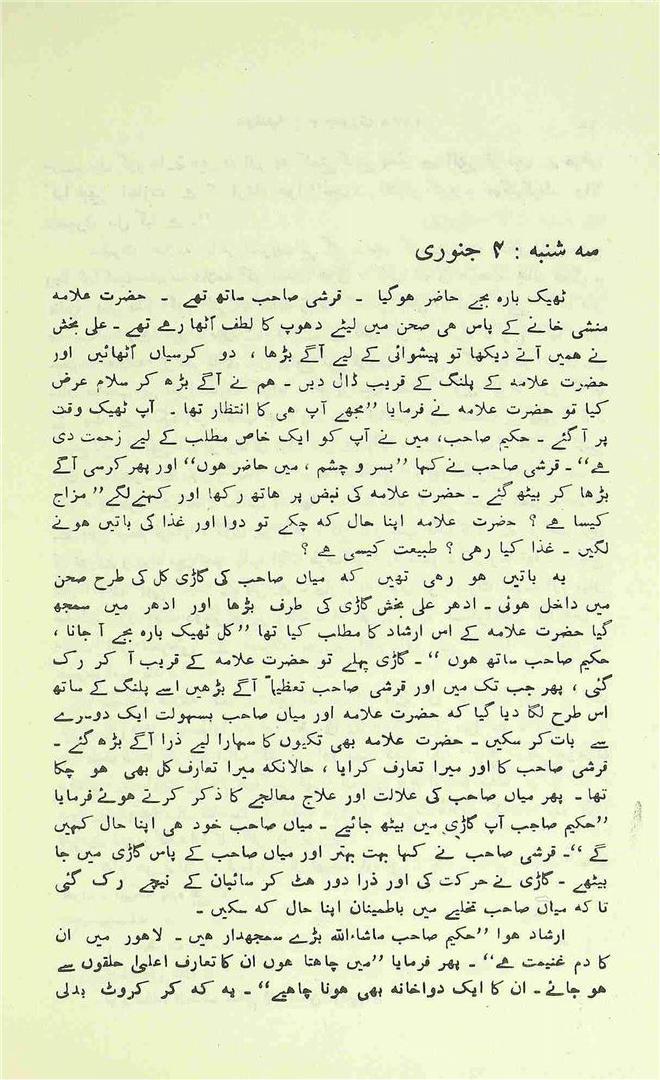 سہ شنبہ : ۴ جنوری
ٹھیک بارہ بجے حاضر ہوگیا ۔ قرشی صاحب ساتھ تھے ۔ حضرت علامہ
منشی خانے کے پاس ھی صحن میں لیٹے دھوپ کا لطف اُٹھا رہے تھے ۔ علی بخش
نے ہمیں آتے دیکھا تو پیشوائی کے لیے آگے بڑھا ، دو کرسیاں اُٹھائیں اور
حضرت علامہ کے پلنگ کے قریب ڈال دیں ۔ ہم نے آگے بڑھ کر سلام عرض
کیا تو حضرت علامہ نے فرمایا ”مجھے آپ ھی کا انتظار تھا ۔ آپ ٹھیک وقت
پر آ گئے ۔ حکیم صاحب، میں نے آپ کو ایک خاص مطلب کے لیے زحمت دی
ہے“ ۔ قرشی صاحب نے کہا ”بسر و چشم ، میں حاضر ہوں“ اور پھر کرسی آگے
بڑھا کر بیٹھ گئے ۔ حضرت علامہ کی نبض پر ہاتھ رکھا اور کہنے لگے ”مزاج
کیسا ہے ؟ حضرت علامہ اپنا حال کہہ چکے تو دوا اور غذا کی باتیں ہونے
لگیں ۔ غذا کیا رھی ؟ طبیعت کیسی ہے ؟
یہ باتیں ہو رھی تھیں کہ میاں صاحب کی گاڑی کل کی طرح صحن
میں داخل ہوئی ۔ ادھر علی بخش گاڑی کی طرف بڑھا اور ادھر میں سمجھ
گیا حضرت علامہ کے اس ارشاد کا مطلب کیا تھا ”کل ٹھیک بارہ بجے آ جانا ،
حکیم صاحب ساتھ ہوں“ ۔ گاڑی پہلے تو حضرت علامہ کے قریب آ کر رک
گئی ، پھر جب تک میں اور قرشی صاحب تعظیماً آگے بڑھیں اسے پلنگ کے ساتھ
اس طرح لگا دیا گیا کہ حضرت علامہ اور میاں صاحب بسہولت ایک دوسرے
سے بات کر سکیں ۔ حضرت علامہ بھی تکیوں کا سہارا لیے ذرا آگے بڑھ گئے ۔
قرشی صاحب کا اور میرا تعارف کرایا ، حالانکہ میرا تعارف کل بھی ہو چکا
تھا ۔ پھر میاں صاحب کی علالت اور علاج معالجے کا ذکر کرتے ہوئے فرمایا
”حکیم صاحب آپ گاڑی میں بیٹھ جائیے ۔ میاں صاحب خود ھی اپنا حال کہیں
گے“ ۔ قرشی صاحب نے کہا بہت بہتر اور میاں صاحب کے پاس گاڑی میں جا
بیٹھے ۔ گاڑی نے حرکت کی اور ذرا دور ہٹ کر سائبان کے نیچے رک گئی
تا کہ میاں صاحب تخلیے میں باطمینان اپنا حال کہہ سکیں ۔
ارشاد ہوا ”حکیم صاحب ماشاءاللہ بڑے سمجھدار ہیں ۔ لاہور میں ان
کا دم غنیمت ہے“ ۔ پھر فرمایا ”میں چاہتا ہوں ان کا تعارف اعلیٰ حلقوں سے
ہو جائے ۔ ان کا ایک دواخانہ بھی ہونا چاہیے“ ۔ یہ کہہ کر کروٹ بدلی